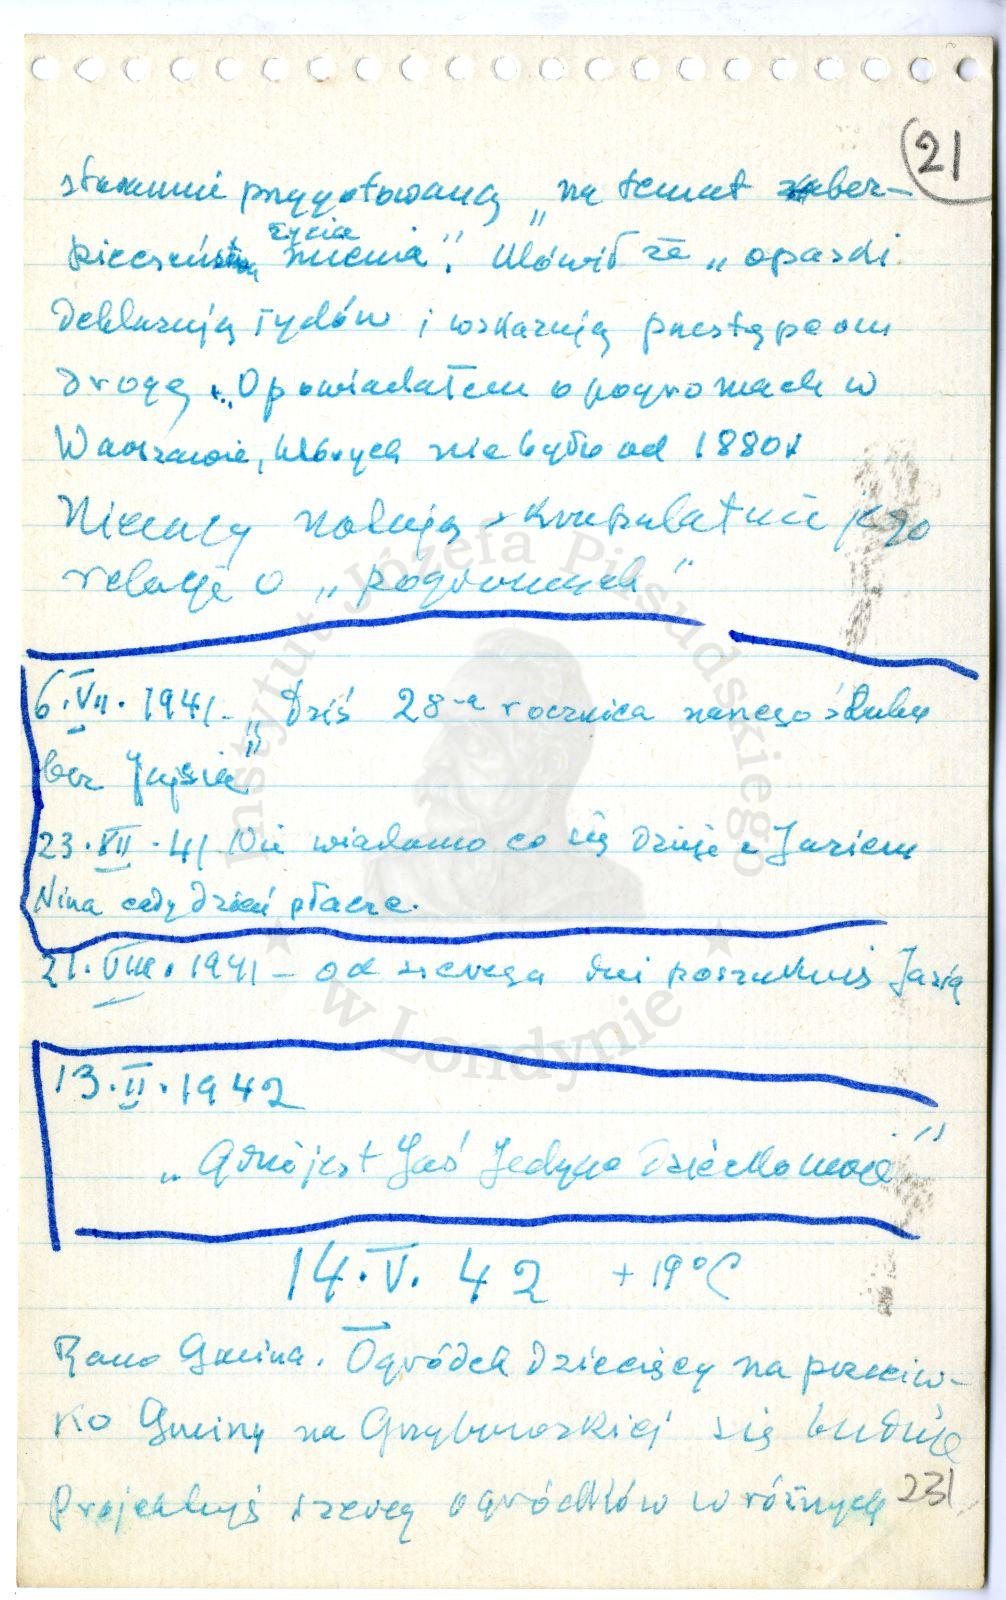 21
starannie przygotowaną „na temat zaber-
pieczeństwa życia mienia". Mówił że „opaski
deklasują Żydów i wskazują przestępcom
drogę". Opowiadałem o pogromach w
Warszawie, których nie było od 1880r
Niemcy notują skrupulatnie jego
relacje o „pogromach"
6.VII.1941 – „Dziś 28-a rocznica naszego ślubu
bez Jasia"
23.VII.41 Nie wiadomo co się dzieje z Jasiem
Nina cały dzień płacze.
21.VIII.1941 – od szeregu dni poszukuję Jasia
13.II.1942
„Gdzie jest Jaś Jedyne Dziecko moje"
14.V.42 +19°C
Rano Gmina. Ogródek Dziecięcy na przeciw-
ko Gminy na Grzybowskiej się buduje
Projektuję szereg ogródków w różnych
231
Instytut Józefa Piłsudskiego
w Londynie